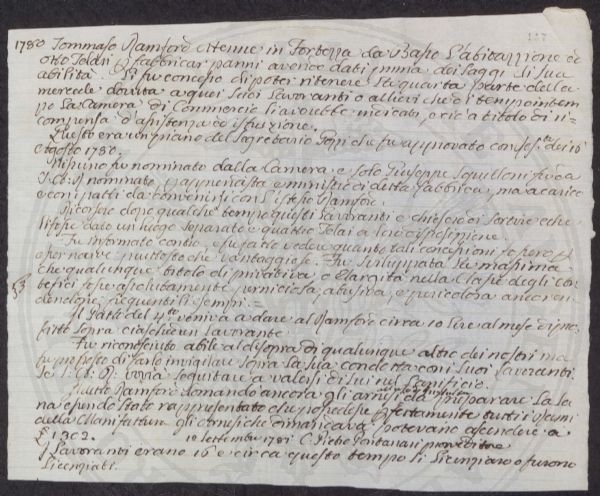 1780 Tommaso Ramford ottenne in Fortezza da Basso L'abitazzione ed
otto Telari p fabbricar panni avendo dati prima dei saggi di sua
abilità. Si fu concesso di poter ritenere La quarta parte della
mercede dovuta a quei Suoi Lavoranti o allievi che di tempo in tem
po La Camera di Commercio li avrebbe indicati, e ciò a titolo di ri=
compensa d'assistenza ed istruzione.
Questo era un piano del Segretario che fu approvato con
agosto 1780.
Nissuno fu nominato dalla Camera, e solo Giuseppe
nominato apprendista e ministro di detta fabbrica, ma a carico
e con i patti da convenirsi con L'istesso Ramford.
Ricorsero dopo qualche tempo questi Lavoranti e chiesero di sortire e che
L'fosse dato un luogo separato e quattro Telai a loro disposizione.
Fu informato contro, e fu fatto vedere quanto tali concessioni fossero
p nascive piuttosto che vantaggiose. Fu sviluppata La massima
che qualunque titolo di privativa o Elargità nella Classe degli Ar=
tefici fosse assolutamente perniciosa, abusiva, e pericolosa ancora
dendone i seguenti esempi. =
Il Patto del 4to veniva a dare al Ramford circa 10 Lire al mese di pro=
fitto sopra ciascheun Lavorante.
Fu riconosciuto abile al disopra di qualunque altro dei nostri ma
fu proposto di farlo invigilare sopra La sua condotta con i suoi Lavoranti
Se dovrà seguitare a valersi di Lui nel Lanificio.
Detto Ramford domandò ancora gli arnesi da preparare La La
na essendo stato rappresentato che possedesse perfettamente tutti i rami
della Manifattura gli arnesi che dimandava potevano ascendere a
£ 1302. 10 Settembre 1781 C. Pietro Fontanari
I Lavoranti erano 16 e circa questo tempo si Licenziaro o furono
Licenziati.